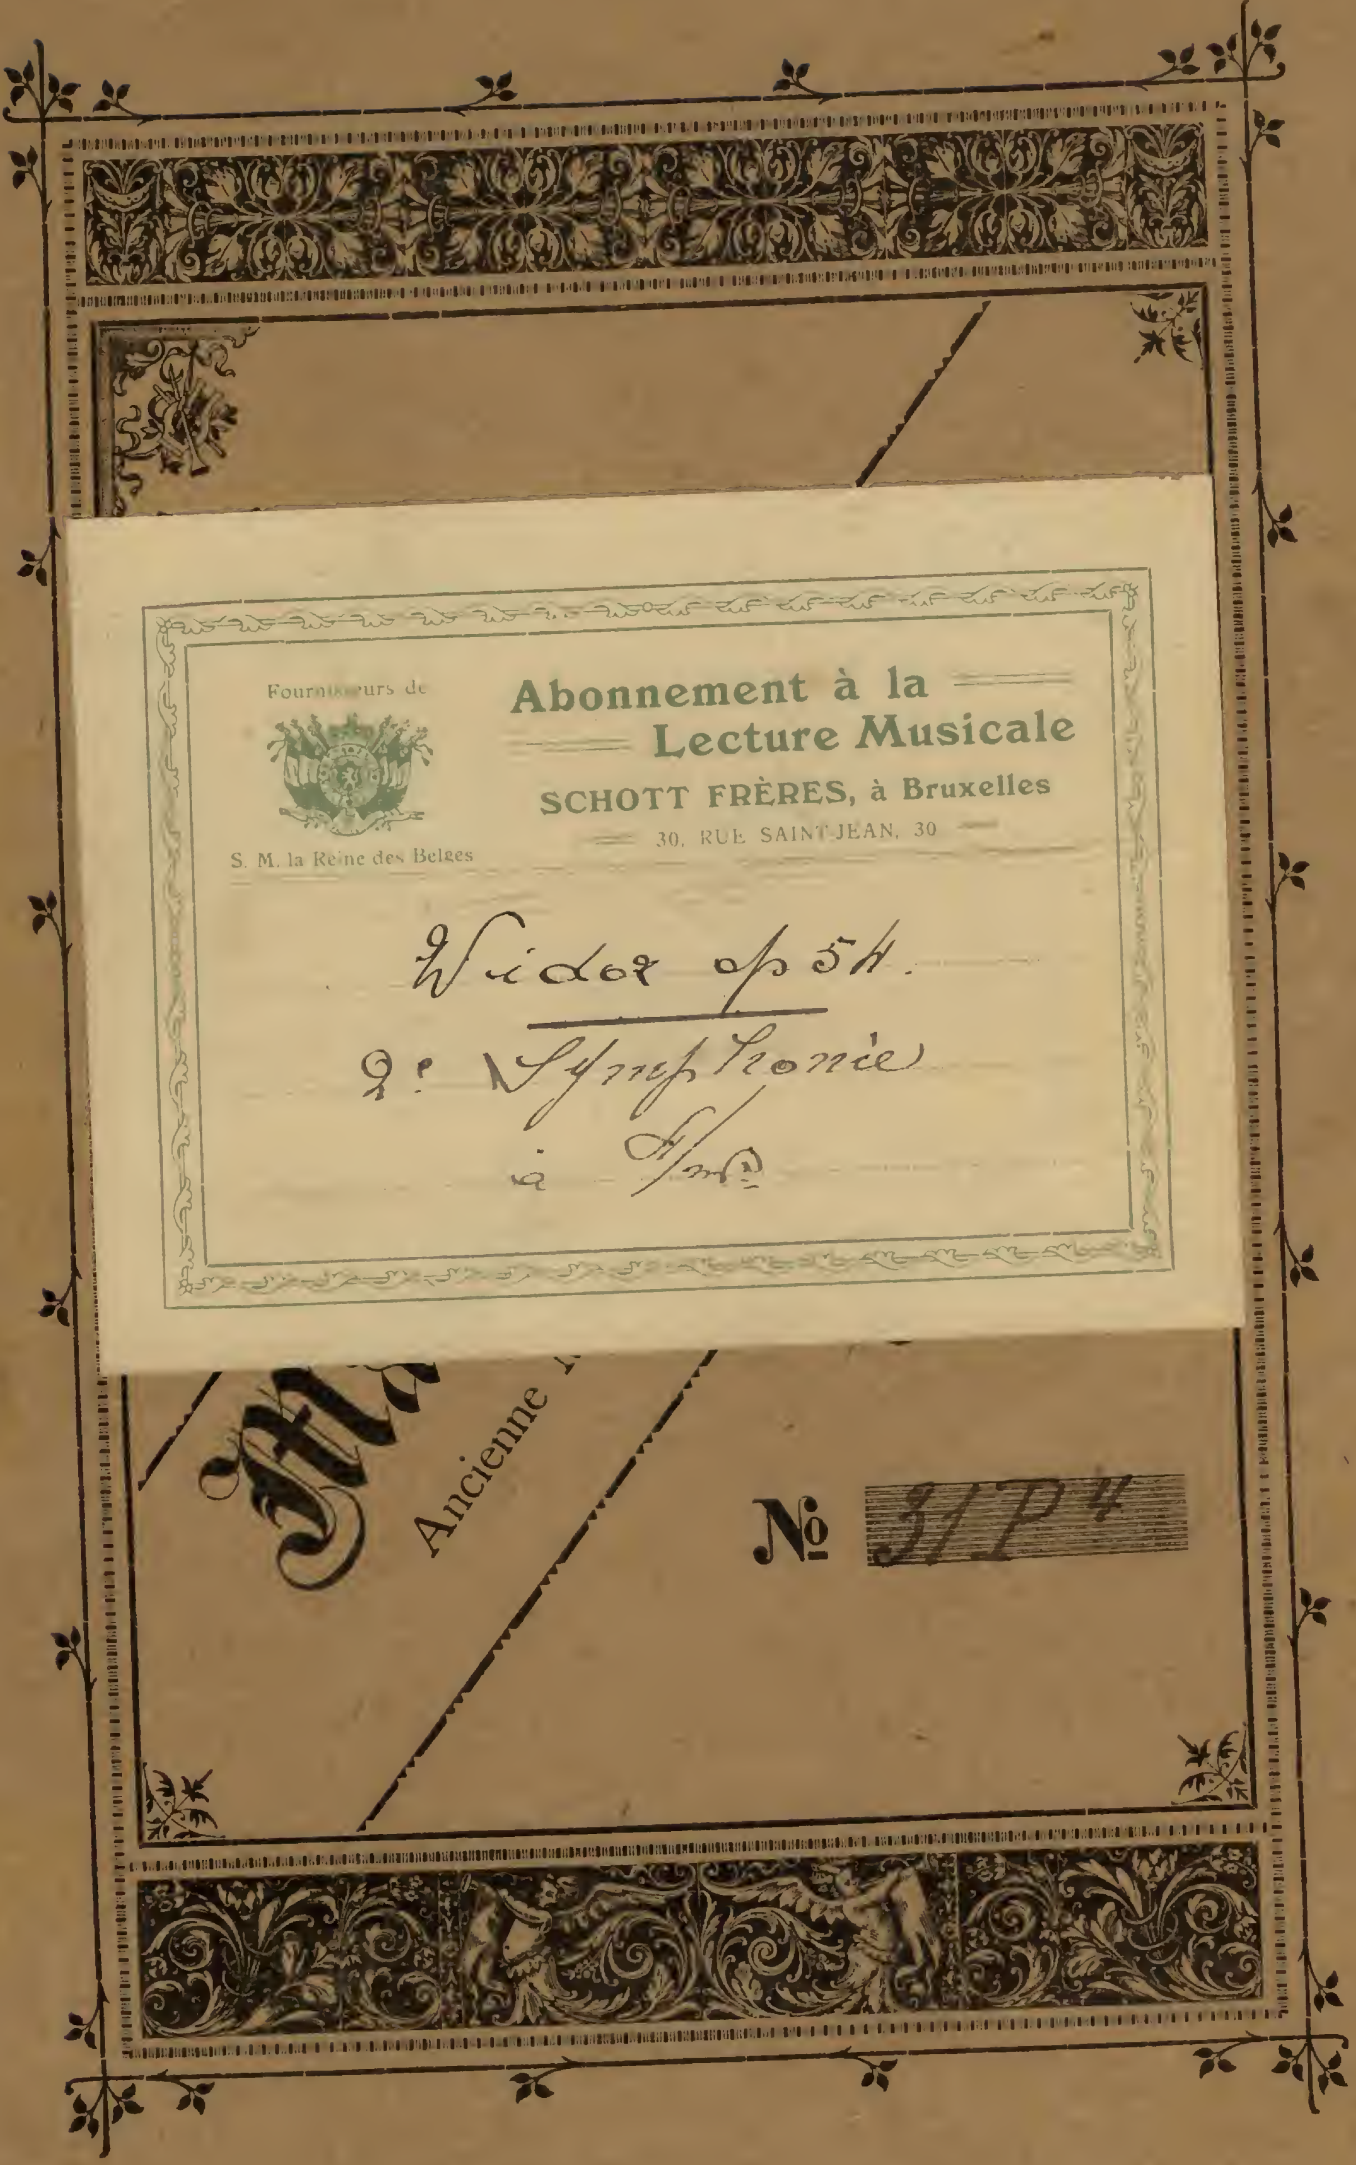 Fournisseurs de
S. M. la Reine des Belges
Abonnement à la
Lecture Musicale
SCHOTT FRÈRES, à Bruxelles
30, RUE SAINT-JEAN, 30
Widor op 54.
2e Symphonie
à 4/ms
Ancienne
No 31P4